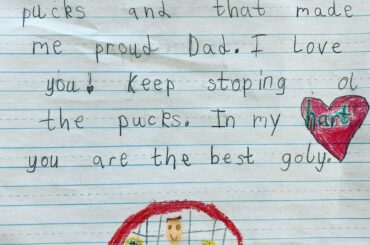 pucks and that made
me proud Dad. I Love
you! Keep stoping ol
the pucks. In my hart
you are the best goly.